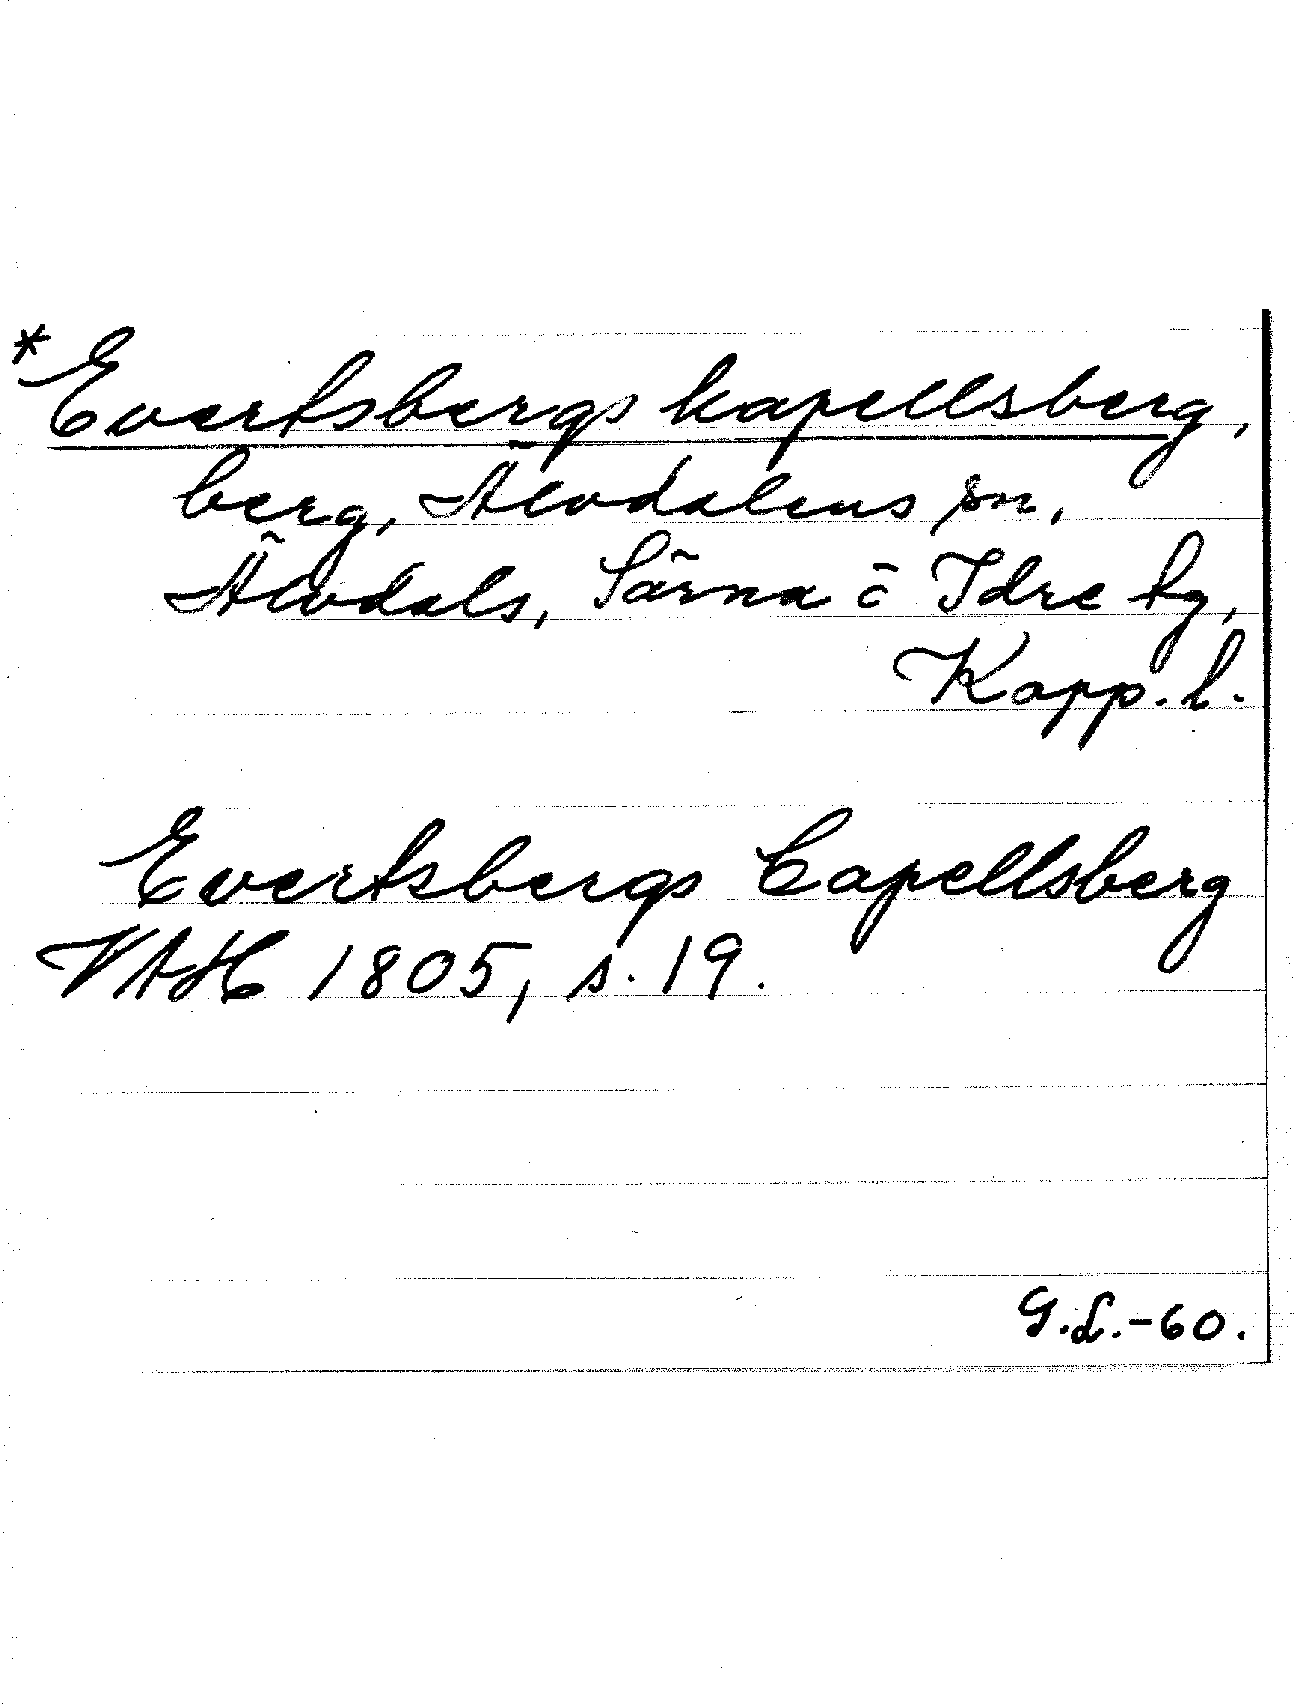 *Evertsbergs kapellsberg,
berg, Älvdalens sn,
Älvdals, Särna o Idre tg,
Kopp. l.
Evertsbergs Capellsberg
VAH 1805, s. 19.
G.L.-60.